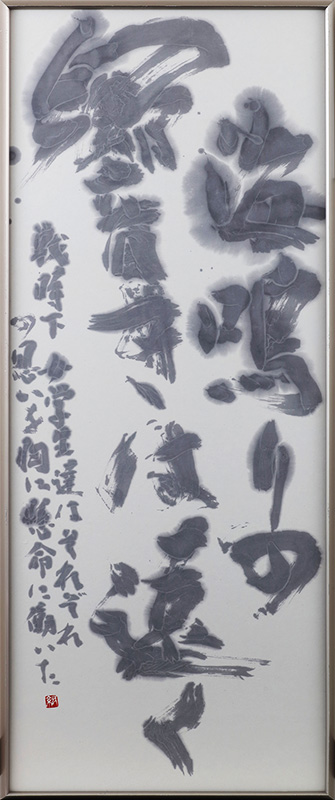 海鳴りの
は遠く
戦時下 女学生達はそれぞれ
の思いを胸に懸命に働いた